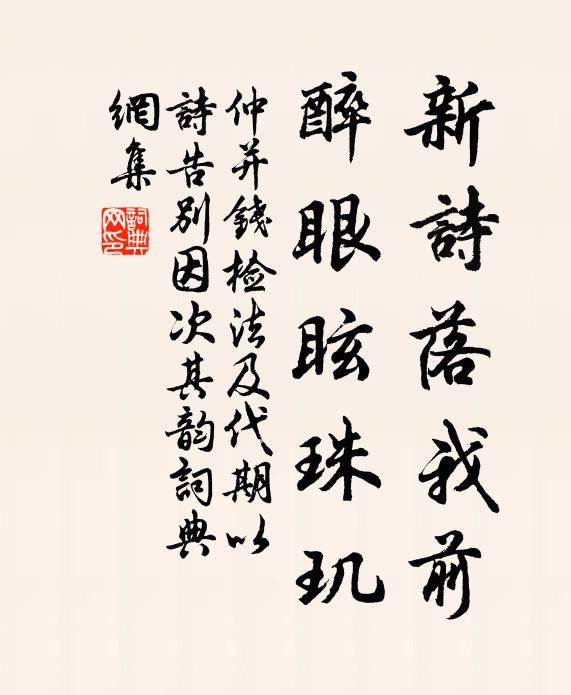 新詩落我前
醉眼眩珠玑
仲并錢检法及代期以
詩告别因次其韵詞典
網集
詞典网印